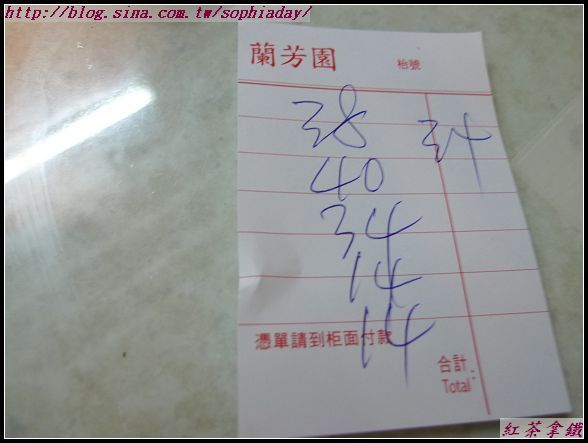 http://blog.sina.com.tw/sophiaday/
蘭芳園
枱號
38 34
40
34
14
14
憑單請到柜面付款
合計:
Total
紅茶拿鐵